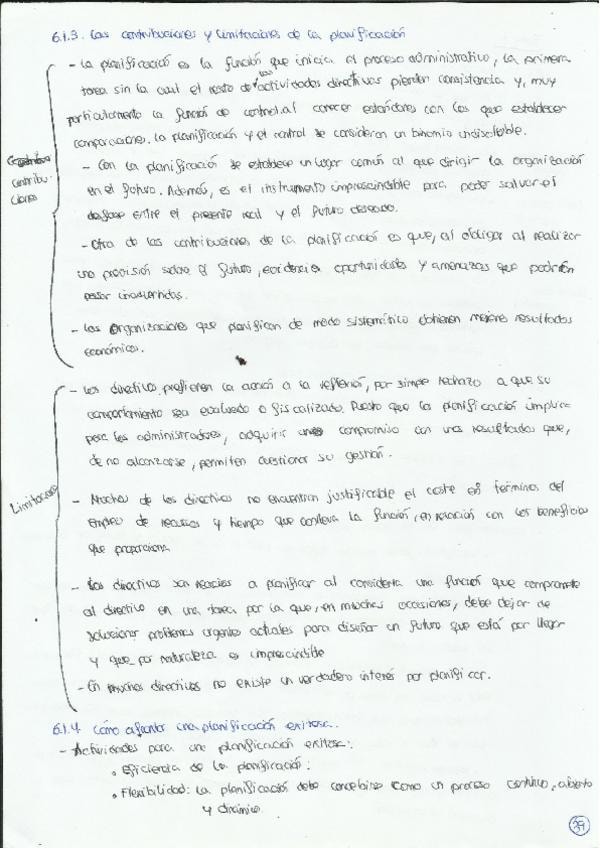 6.1.3. Las contribuciones y limitaciones de la planificación
- La planificación es la función que inicia el proceso administrativo, la primera
tarea sin la cual el resto de las actividades directivas pierden consistencia y, muy
particularmente la función de control al conocer estándares con los que establecer
comparaciones. La planificación y el control se consideran un binomio indisoluble.
Contribu-
ciones
- Con la planificación se establece un lugar común al que dirigir la organización
en el futuro. Además, es el instrumento imprescindible para poder salvar el
desfase entre el presente real y el futuro deseado.
- Otra de las contribuciones de la planificación es que, al obligar al realizar
una previsión sobre el futuro, evidencia oportunidades y amenazas que podrían
estar inadvertidas.
- Las organizaciones que planifican de modo sistemático obtienen mejores resultados
económicos.
- Los directivos prefieren la acción a la reflexión, por simple rechazo a que su
comportamiento sea evaluado o fiscalizado. Puesto que la planificación implica
para los administradores, adquirir un compromiso con unos resultados que,
de no alcanzarse, permiten cuestionar su gestión.
Limitaciones
- Muchos de los directivos no encuentran justificable el coste en términos del
empleo de recursos y tiempo que conlleva la función, en relación con los beneficios
que proporciona
- Los directivos son reacios a planificar al considerarla una función que compromete
al directivo en una tarea por la que, en muchas ocasiones, debe dejar de
solucionar problemas urgentes actuales para diseñar un futuro que está por llegar
y que por naturaleza es impredecible
- En muchos directivos no existe un verdadero interés por planificar.
6.1.4 Cómo afrontar una planificación exitosa.
- Actividades para una planificación exitosa:
• Eficiencia de la planificación:
• Flexibilidad: La planificación debe concebirse como un proceso continuo, abierto
y dinámico.